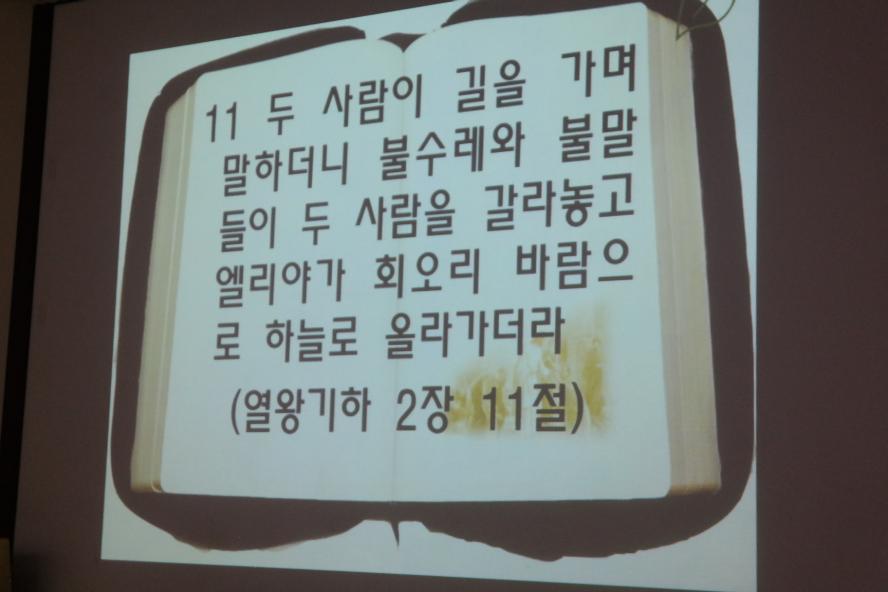 11 두 사람이 길을 가며
말하더니 불수레와 불말
들이 두 사람을 갈라놓고
엘리야가 회오리 바람으
로 하늘로 올라가더라
(열왕기하 2장 11절)